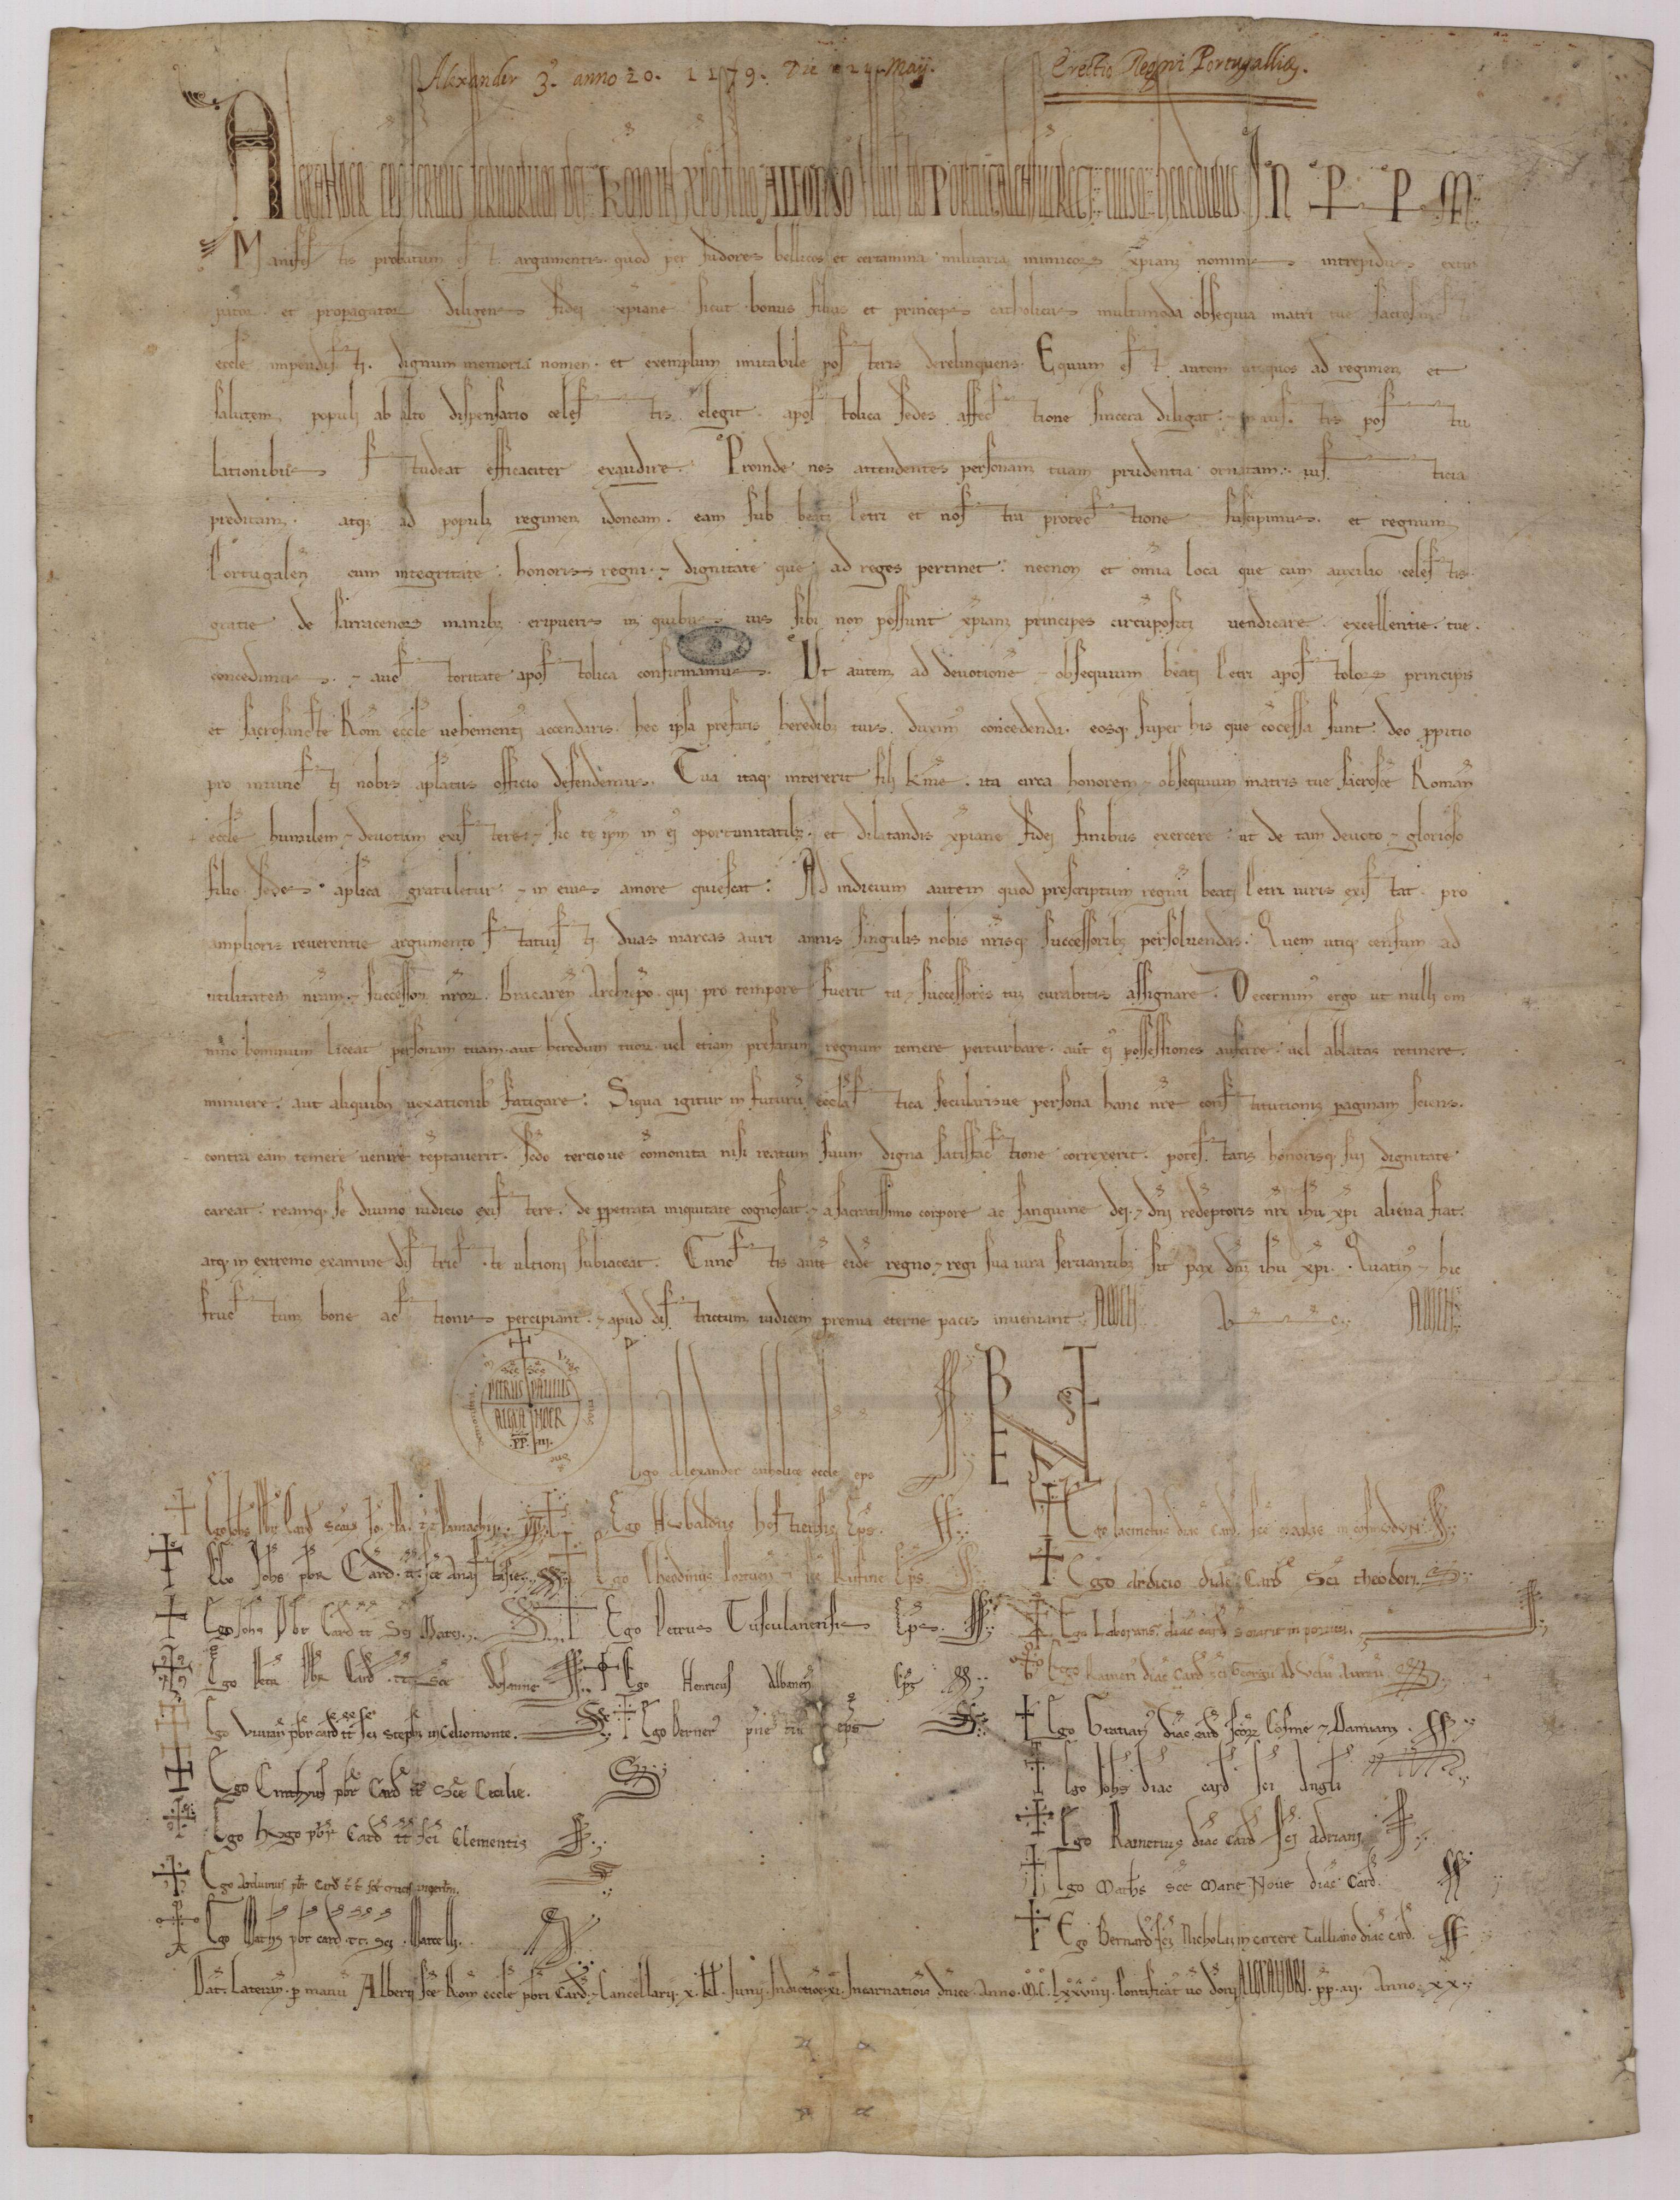 Alexander 3. anno 20. 1179. Die Maij.
Erectio Regni Portugalliæ.
ALEXANDER EPS SERVUS SERVORUM DEI. KMO IN XPO FILIO ALFONSO ILLUSTRI PORTUGALENSIUM REGI. EIUSQ. HEREDIBUS. IN P P M
Manifestis probatum est argumentis. quod per sudores bellicos et certamina militaria inimicorum xpiani nominis intrepidus extir
pator. et propagator diligens fidei xpiane sicut bonus filius et princeps catholicus multimoda obsequia matri tue sacrosancte
eccle impendisti. dignum memoria nomen. et exemplum imitabile posteris derelinquens. Equum est autem ut quos ad regimen et
salutem populi ab alto dispensatio celestis elegit. apostolica sedes affectione sincera diligat. ⁊ in iustis postu
lationibus studeat efficaciter exaudire. Proinde nos attendentes personam tuam prudentia ornatam. iusticia
preditam. atq; ad populi regimen idoneam. eam sub beati Petri et nostra protectione suscipimus. et regnum
Portugalen cum integritate honoris regni. ⁊ dignitate que ad reges pertinet. necnon et omia loca que cum auxilio celestis
gratie de sarracenorum manibz eripueris in quibus ius sibi non possunt xpiani principes circupositi uendicare. excellentie tue
concedimus. ⁊ auctoritate apostolica confirmamus. Ut autem ad deuotione ⁊ obsequium beati Petri apostolorum principis
et sacrosancte Rom eccle uehementi accendaris. hec ipsa prefatis heredibz tuis duxim concedenda. eosq; super his que cocessa sunt deo ppitio
pro iniuncti nobis aplatus officio defendemus. Tua itaq; intererit fili kme. ita circa honorem ⁊ obsequium matris tue sacrosce Roman
eccle humilem ⁊ deuotum existere. ⁊ sic te ipm in ei oportunitatibz. et dilatandis xpiane fidei finibus exercere. ut de tam deuoto ⁊ glorioso
filio sedes aplica gratuletur. ⁊ in eius amore quiescat. Ad indicium autem quod prescriptum regnu beati Petri iuris existat. pro
amplioris reuerentie argumento statuisti duas marcas auri annis singulis nobis nrisq; successoribz persoluendas. Quem utiq; censum ad
utilitatem nram. ⁊ successor nror. Bracaren Archiepo. qui pro tempore fuerit tu ⁊ successores tui curabitis assignare. Decernim ergo ut nulli om
nino hominum liceat personam tuam. aut heredum tuor. uel etiam prefatum regnum temere perturbare. aut ei possessiones auferre. uel ablatas retinere.
minuere. aut aliquibz uexationib fatigare. Siqua igitur in futuru ecclastica secularisue persona hanc nre constitutionis paginam sciens.
contra eam temere uenire teptauerit. scdo tercioue comonita nisi reatum suum digna satisfactione correxerit. potestatis honorisq; sui dignitate
careat. reamq; se diuino iudicio existere. de ppetrata iniquitate cognoscat. ⁊ a sacratissimo corpore ac sanguine dei. ⁊ dni redeptoris nri ihu xpi aliena fiat.
atq; in extremo examine districte ultioni subiaceat. Cunctis aute eide regno ⁊ regi sua iura seruantibz sit pax dni ihu xpi. Quatin ⁊ hic
fructum bone actionis percipiant. ⁊ apud districtum iudicem premia eterne pacis inueniant. AMEN. AMEN.
SCS SCS PETRUS PAULUS
ALEXANDER PP. III.
Ego Alexander catholice eccle eps
BENE
Ego Hubaldus hostiensis Eps.
Ego Theodinus Portuen ⁊ sce Rufine Eps.
Ego Petrus Tusculanensis Eps.
Ego Henricus Albanen Eps
Ego Berner eps
Ego Johs pbr Card tt sce Anastasie.
Ego Johs pbr Card tt Sci Marci.
Ego Petr pbr Card tt sce Susanne
Ego Vivian pbr card tt sci stephi in Celiomonte.
Ego Cinthyus pbr Card tt Sce Cecilie.
Ego hugo pbr Card tt sci Clementis
Ego pbr card tt sce crucis in
Ego Matthis pbr card. tt. sci. Marcelli.
Ego Iacinctus diac card. sce marie in cosmydyn
Ego Ardicio diac Card Sci theodori.
Ego Laborans diac card s marie in porticu.
Ego Raineri diac Card sci Georgii ad Velu Aureu
Ego Gratian diac card scor Cosme ⁊ Damiani.
Ego Johs diac card sci Angli
Ego Rainerius diac card sci Adriani
Ego Maths sce Marie Noue diac card.
Ego Bernard sci Nicholai in carcere Tulliano diac card.
Dat. Lateran. p manu Alberti sce Rom eccle pbri Card. ⁊ Cancellarii. x. kl. Iunii. Indictioe. xi. Incarnationis dnice Anno. M.C.LXXVIIII. Pontificat uo doni ALEXANDRI. pp. III. Anno. XX.